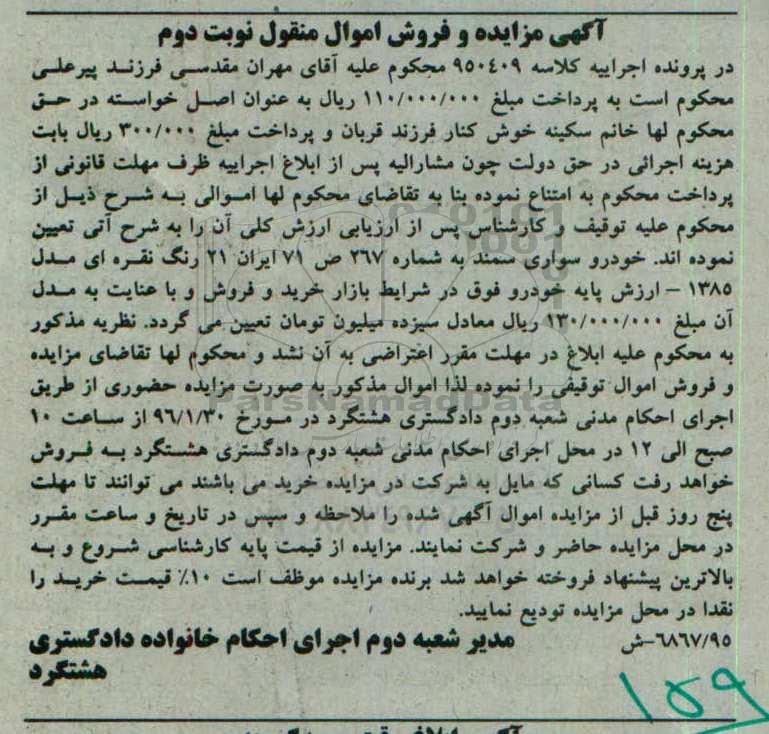 آگهی مزایده و فروش اموال منقول نوبت دوم
در پرونده اجراییه کلاسه ۹۵۰۴۰۹ محکوم علیه آقای مهران مقدسی فرزند پیرعلی
محکوم است به پرداخت مبلغ ۱۱۰/۰۰۰/۰۰۰ ریال به عنوان اصل خواسته در حق
محکوم لها خانم سکینه خوش کنار فرزند قربان و پرداخت مبلغ ۳۰۰/۰۰۰ ریال بابت
هزینه اجرائی در حق دولت چون مشارالیه پس از ابلاغ اجراییه ظرف مهلت قانونی از
پرداخت محکوم به امتناع نموده بنا به تقاضای محکوم لها اموالی به شرح ذیل از
محکوم علیه توقیف و کارشناس پس از ارزیابی ارزش کلی آن را به شرح آتی تعیین
نموده اند. خودرو سواری سمند به شماره ۲۶۷ ص ۷۱ ایران ۲۱ رنگ نقره ای مدل
۱۳۸۵ – ارزش پایه خودرو فوق در شرایط بازار خرید و فروش و با عنایت به مدل
آن مبلغ ۱۳۰/۰۰۰/۰۰۰ ریال معادل سیزده میلیون تومان تعیین می گردد. نظریه مذکور
به محکوم علیه ابلاغ در مهلت مقرر اعتراضی به آن نشد و محکوم لها تقاضای مزایده
و فروش اموال توقیفی را نموده لذا اموال مذکور به صورت مزایده حضوری از طریق
اجرای احکام مدنی شعبه دوم دادگستری هشتگرد در مورخ ۹۶/۱/۳۰ از ساعت ۱۰
صبح الی ۱۲ در محل اجرای احکام مدنی شعبه دوم دادگستری هشتگرد به فروش
خواهد رفت کسانی که مایل به شرکت در مزایده خرید می باشند می توانند تا مهلت
پنج روز قبل از مزایده اموال آگهی شده را ملاحظه و سپس در تاریخ و ساعت مقرر
در محل مزایده حاضر و شرکت نمایند. مزایده از قیمت پایه کارشناسی شروع و به
بالاترین پیشنهاد فروخته خواهد شد برنده مزایده موظف است ۱۰٪ قیمت خرید را
نقدا در محل مزایده تودیع نمایید.
۶۸۶۷/۹۵-ش مدیر شعبه دوم اجرای احکام خانواده دادگستری
هشتگرد
۱۵۹
ParsNamadData